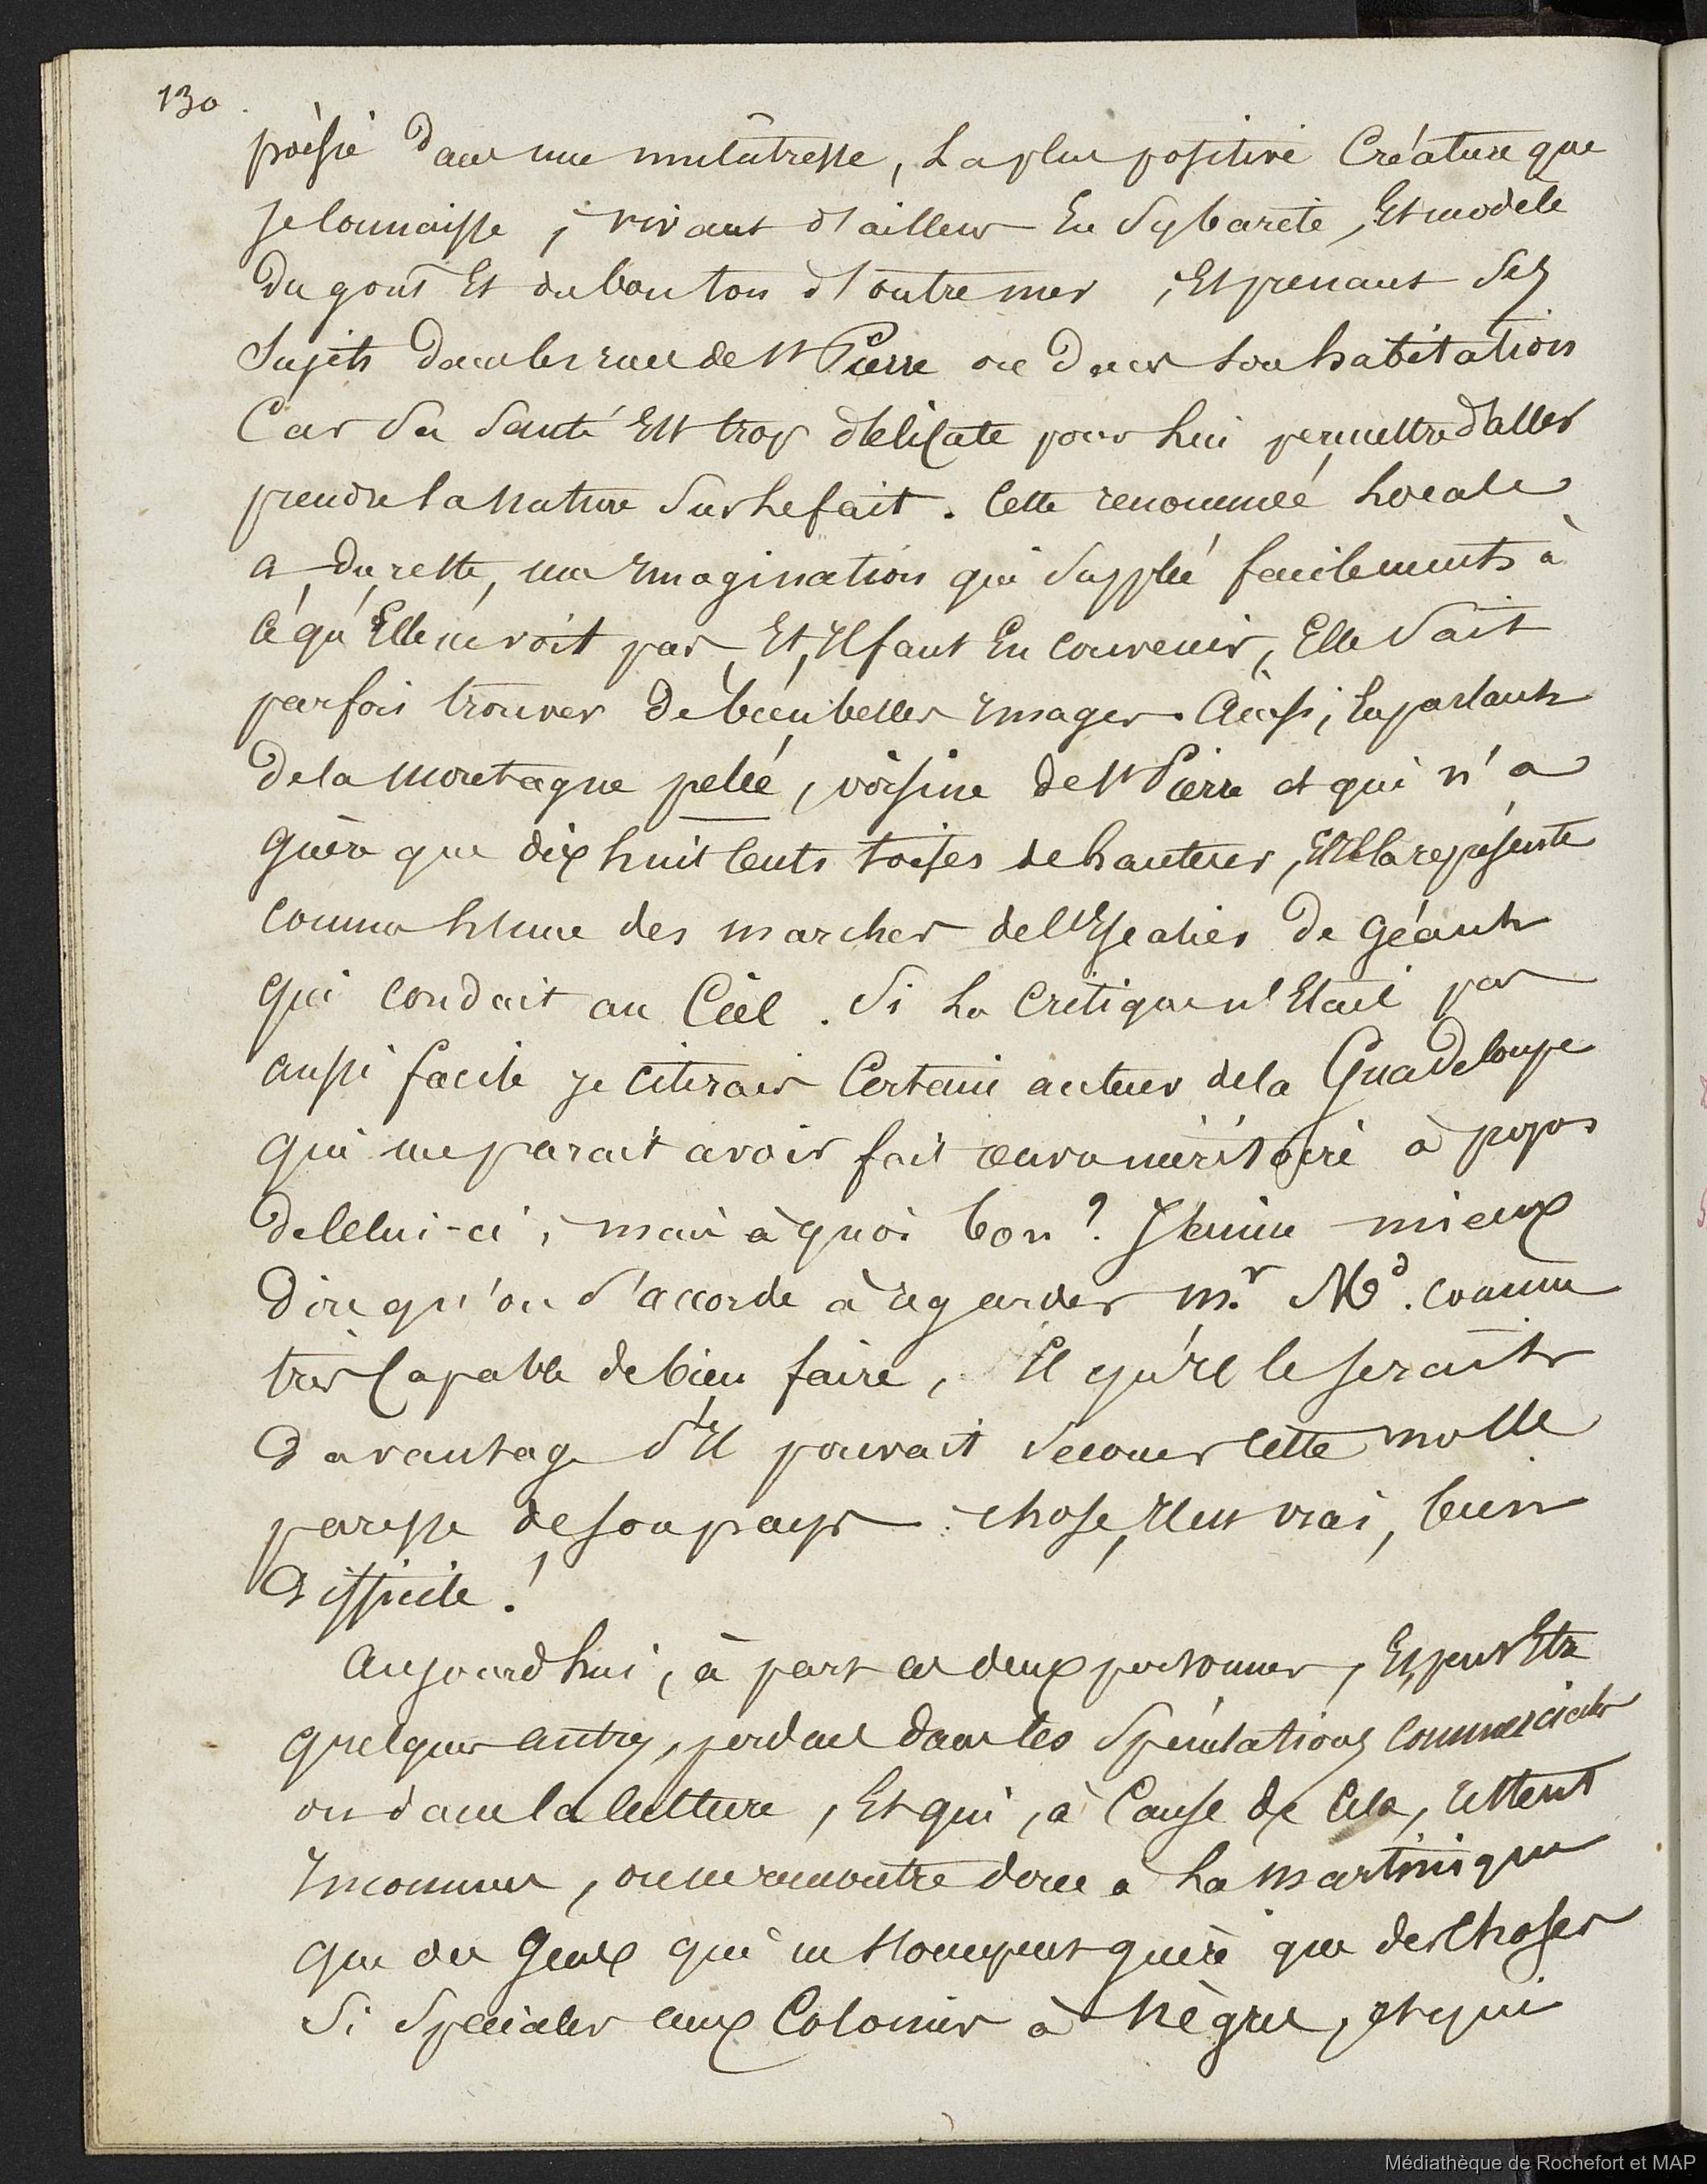 130
poésie dans une mulâtresse, la plus positive Créature que
je connaisse, vivant d'ailleurs En Sybarete, Et modèle
du gout Et du bon ton d'outre mer, Et prenant Ses
Sujets dans les rues de St Pierre ou dans son habitation
Car Sa Santé Est trop délicate pour lui permettre d'aller
prendre la nature Sur le fait. Cette renommée locale
a, du reste, une Imagination qui Supplée facilements à
ce qu'Elle ne voit pas, Et, Il faut En convenir, Elle Sait
parfois trouver de bien belles Images. Ainsi, En parlant
de la montagne pelée, voisine de St Pierre et qui n'a
guère que dix huit Cents toises de hauteur, Elle la représente
comme l'une des marches de l'Escalier de Géants
qui conduit au Ciel. Si la Critique n'Etait pas
aussi facile je citerais Certain auteur de la Guadeloupe
qui me parait avoir fait œuvre méritoire à propos
de Celui-ci, mais à quoi bon? J'aime mieux
dire qu'on S'accorde à regarder Mr Md. comme
très Capable de bien faire, Et qu'Il le serait
davantage S'Il pouvait Secouer Cette molle
paresse de son pays. chose, Il est vrai, bien
difficile!
Aujourd'hui, à part ces deux personnes, Et, peut Etre
quelques autres, perdues dans les Spéculations Commerciales
ou dans la Culture, Et qui, à Cause de Cela, restent
Inconnues, on ne rencontre donc à La Martinique
que des Gens qui ne s'occupent guère que des Choses
Si Spéciales aux Colonies à Nègres, et qui
Médiathèque de Rochefort et MAP